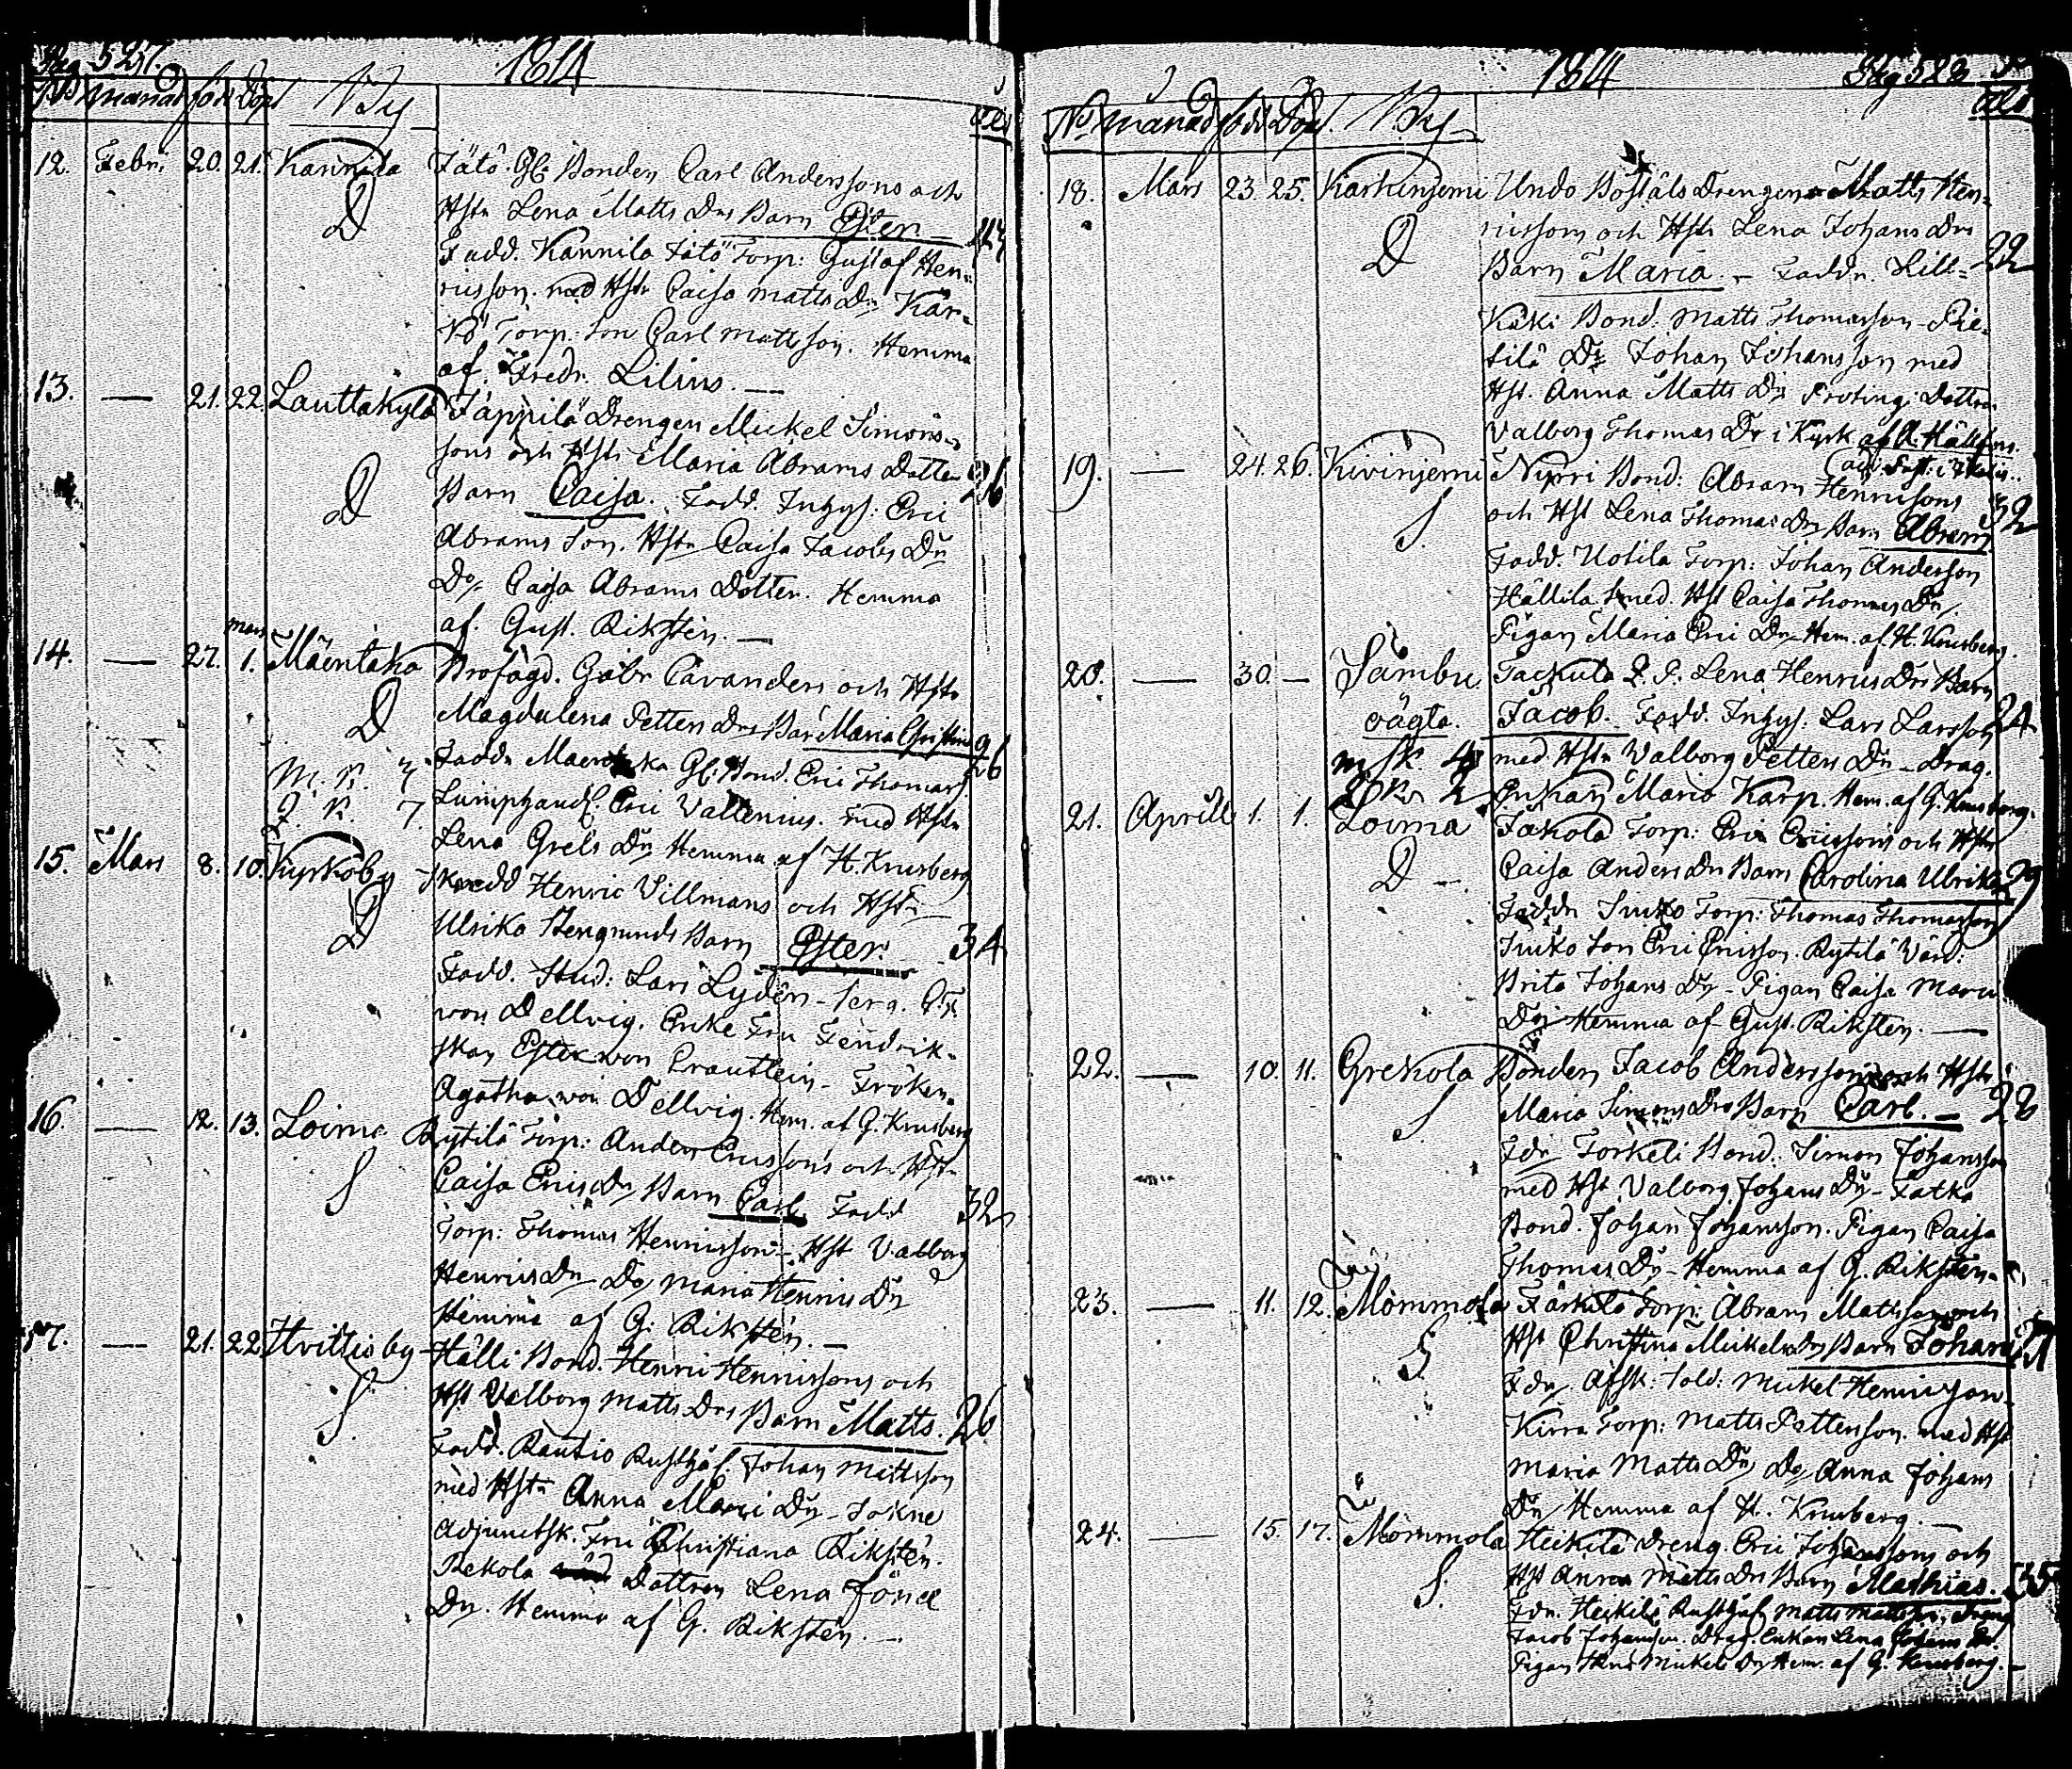 Pag 527. 1814
No månad född Döpt By Åld.
12. Febr. 20. 21. Kannila Jätö Gl. Bonden Carl Anderssons och
D Hstr Lena Matts Drs Barn Ester
Fadd. Kannila Jätö Torp: Gustaf Hen-
ricsson med Hstr Caisa Matts Dr
Torp: Son Carl Mattsson. Hemma
af Fredr. Lilius.
13. — 21. 22. Lauttakylä Jäppilä Drengen Mickel Simons-
sons och Hstr Maria Abrams Dotter 26
D Barn Caisa. Fadd. Inhys: Eric
Abrams Son. Hstr Caisa Jacobs Dr
Do Caisa Abrams Dotter. Hemma
af Gust. Rikstén.
14. — 27. mars 1. Mäentaka Brofogd. Gabr. Cavanders och Hstr
D Magdalena Petters Drs Barn Maria Christina 26
Fadd. Gl. Bond. Eric Thomass.
M. K. 7. Eric Vallenius. med Hstr
Q. K. 7. Lena Grels Dr Hemma af H. Knusberg
15. Mars 8. 10. Kyrkoby Henric Villmans och Hstr
D Ulrika Stengrunds Barn Ester. 34
Fadd. Stud: Lars Lydén
von Dellvig. Enke Fru Fendrik-
skan Ester von Frautlein Fröken
Agatha von Dellvig. Hem. af G. Knusberg
16. — 12. 13. Loima Rytilä Torp: Anders Ericssons och Hstr
S Caisa Erics Dr Barn Carl. Fadd 32
Torp: Thomas Henricsson Hstr Valborg
Henrics Dr Do Maria Henrics Dr
Hemma af G. Rikstén.
17. — 21. 22. Hvittisby Hälli Bond. Henric Henricssons och
S. Hst Valborg Matts Drs Barn Matts. 26
Fadd. Rautio Rusthål. Johan Mattsson
med Hstr Anna Dr Sokne
Adjunctsk. Fru Christiana Rikstén.
Rekola Dottren Lena
Dr. Hemma af G. Rikstén.
1814 Pag 528
No månad född Döpt. By Åld.
18. Mars 23. 25. Karhinjemi Undo Boställs Drengens Matts Hen-
ricssons och Hstr Lena Johans Drs
D Barn Maria. — Fadd. Lill- 22
Käki Bond. Matts Thomasson
Johan Johansson med
Hst. Anna Matts Dr Dottren
Valborg Thomas Dr i Kyrk af A. Hällfors.
19. — 24. 26. Kivinjemi Nyrri Bond: Abram Henricssons
S. och Hst Lena Thomas Drs Barn Abram 32
Fadd. Uotila Torp: Johan Andersson
Hällilä Smed. Hst Caisa Thomas Dr.
Pigan Maria Eric Dr Hem. af H. Knusberg.
20. — 30. — Sambu Tackula Q. P. Lena Henrics Drs Barn
oägta. Jacob. Fadd. Inhys. Lars Larsson 24
m. K. 4 med Hstr Valborg Petters Dr — Drag.
Q. K. 2 Enkan Maria Karp. Hem. af G. Knusberg.
21. Aprill 1. 1. Loima Jakola Torp: Eric Ericssons och Hstr
D — Caisa Anders Drs Barn Carolina Ulrika 29
Faddr Torp: Thomas Thomasson
Son Eric Ericsson. Rytilä Värd.
Brita Johans Dr — Pigan Caisa
Dr Hemma af Gust. Rikstén.
22. — 10. 11. Grekola Bonden Jacob Anderssons och Hstr
S Maria Simons Drs Barn Carl. — 28
Fdr Torkeli Bond. Simon Johansson
med Hst Valborg Johans Dr
Bond. Johan Johansson. Pigan Caisa
Thomas Dr — Hemma af G. Rikstén.
23. — 11. 12. Mommola Torp: Abram Mattsson och
S Hst Christina Mickels Drs Barn Johan
Fdr. Afsk: Sold: Mickel Henricsson
Torp: Matts Pettersson. med Hst
Maria Matts Dr Do Anna Johans
Dr Hemma af H. Knusberg. —
24. — 15. 17. Mommola Heikilä Dreng. Eric Johanssons och
S. Hst Anna Matts Drs Barn Mathias. 35
Fdr. Heikilä Rusthål. Matts Mattsson, Dreng
Jacob Johansson. Enkan Lena Johans Dr.
Pigan Mickels Dr Hem. af G. Knusberg. —